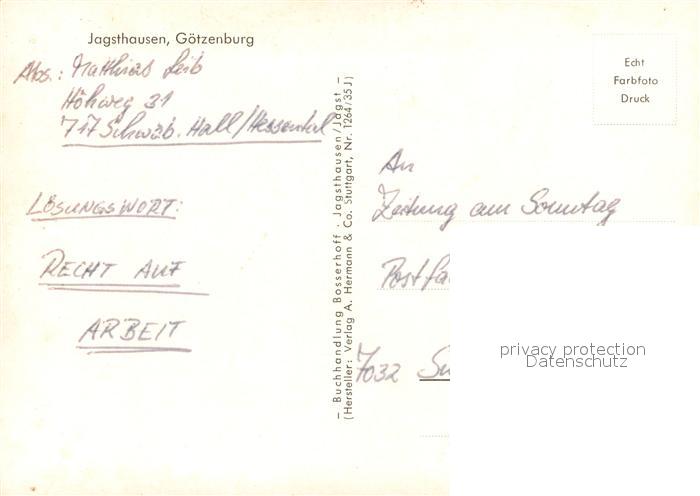 Jagsthausen, Götzenburg
Abs.: Matthias Leib
Höhweg 31
717 Schwäb. Hall/Hessental
LÖSUNGSWORT:
RECHT AUF
ARBEIT
— Buchhandlung Bosserhoff · Jagsthausen/Jagst —
(Hersteller: Verlag A. Hermann & Co. Stuttgart, Nr. 1264/35 J)
Echt
Farbfoto
Druck
An
Zeitung am Sonntag
7032
privacy protection
Datenschutz